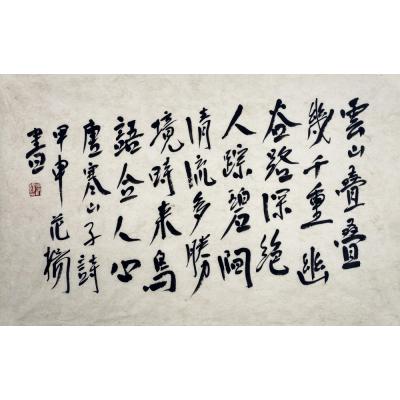 雲山疊疊
幾千重幽
谷路深絕
人踪碧澗
清流多勝
境時來鳥
語合人心
唐寒山子詩
甲申范揚